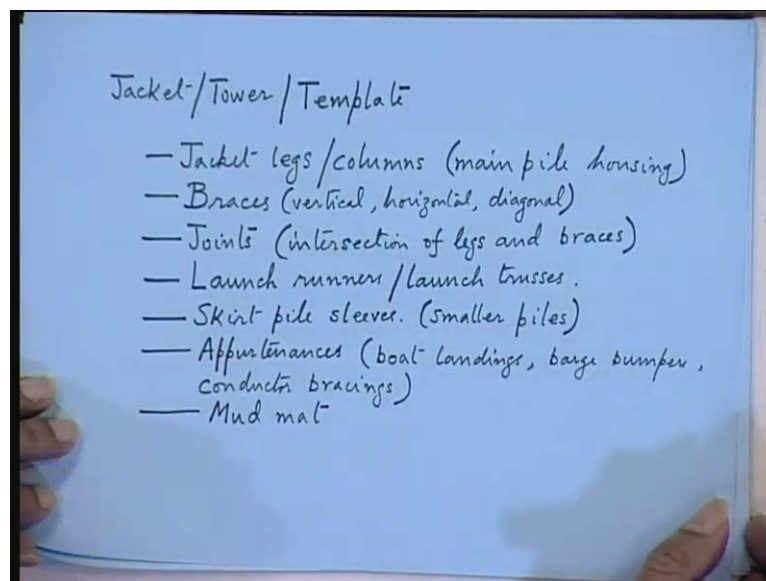 Jacket/Tower/Template
— Jacket legs/columns (main pile housing)
— Braces (vertical, horizontal, diagonal)
— Joints (intersection of legs and braces)
— Launch runners/launch trusses.
— Skirt pile sleeves. (smaller piles)
— Appurtenances (boat landings, barge bumpers,
conductor bracings)
— Mud mat